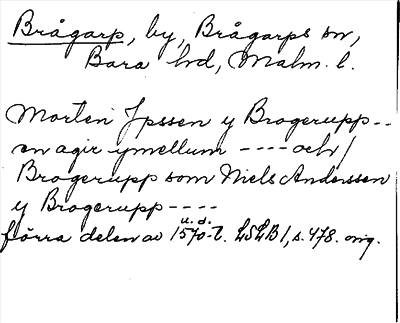 Brågarp, by, Brågarps sn,
Bara hd, Malm. l.
Morten Jpssen y Brogerupp --
en agir ymellum ---- och /
Brogerupp som Niels Anderssen
y Brogerupp ----
u. d.
förra delen av 1570-t. LSLB 1, s. 478. orig.